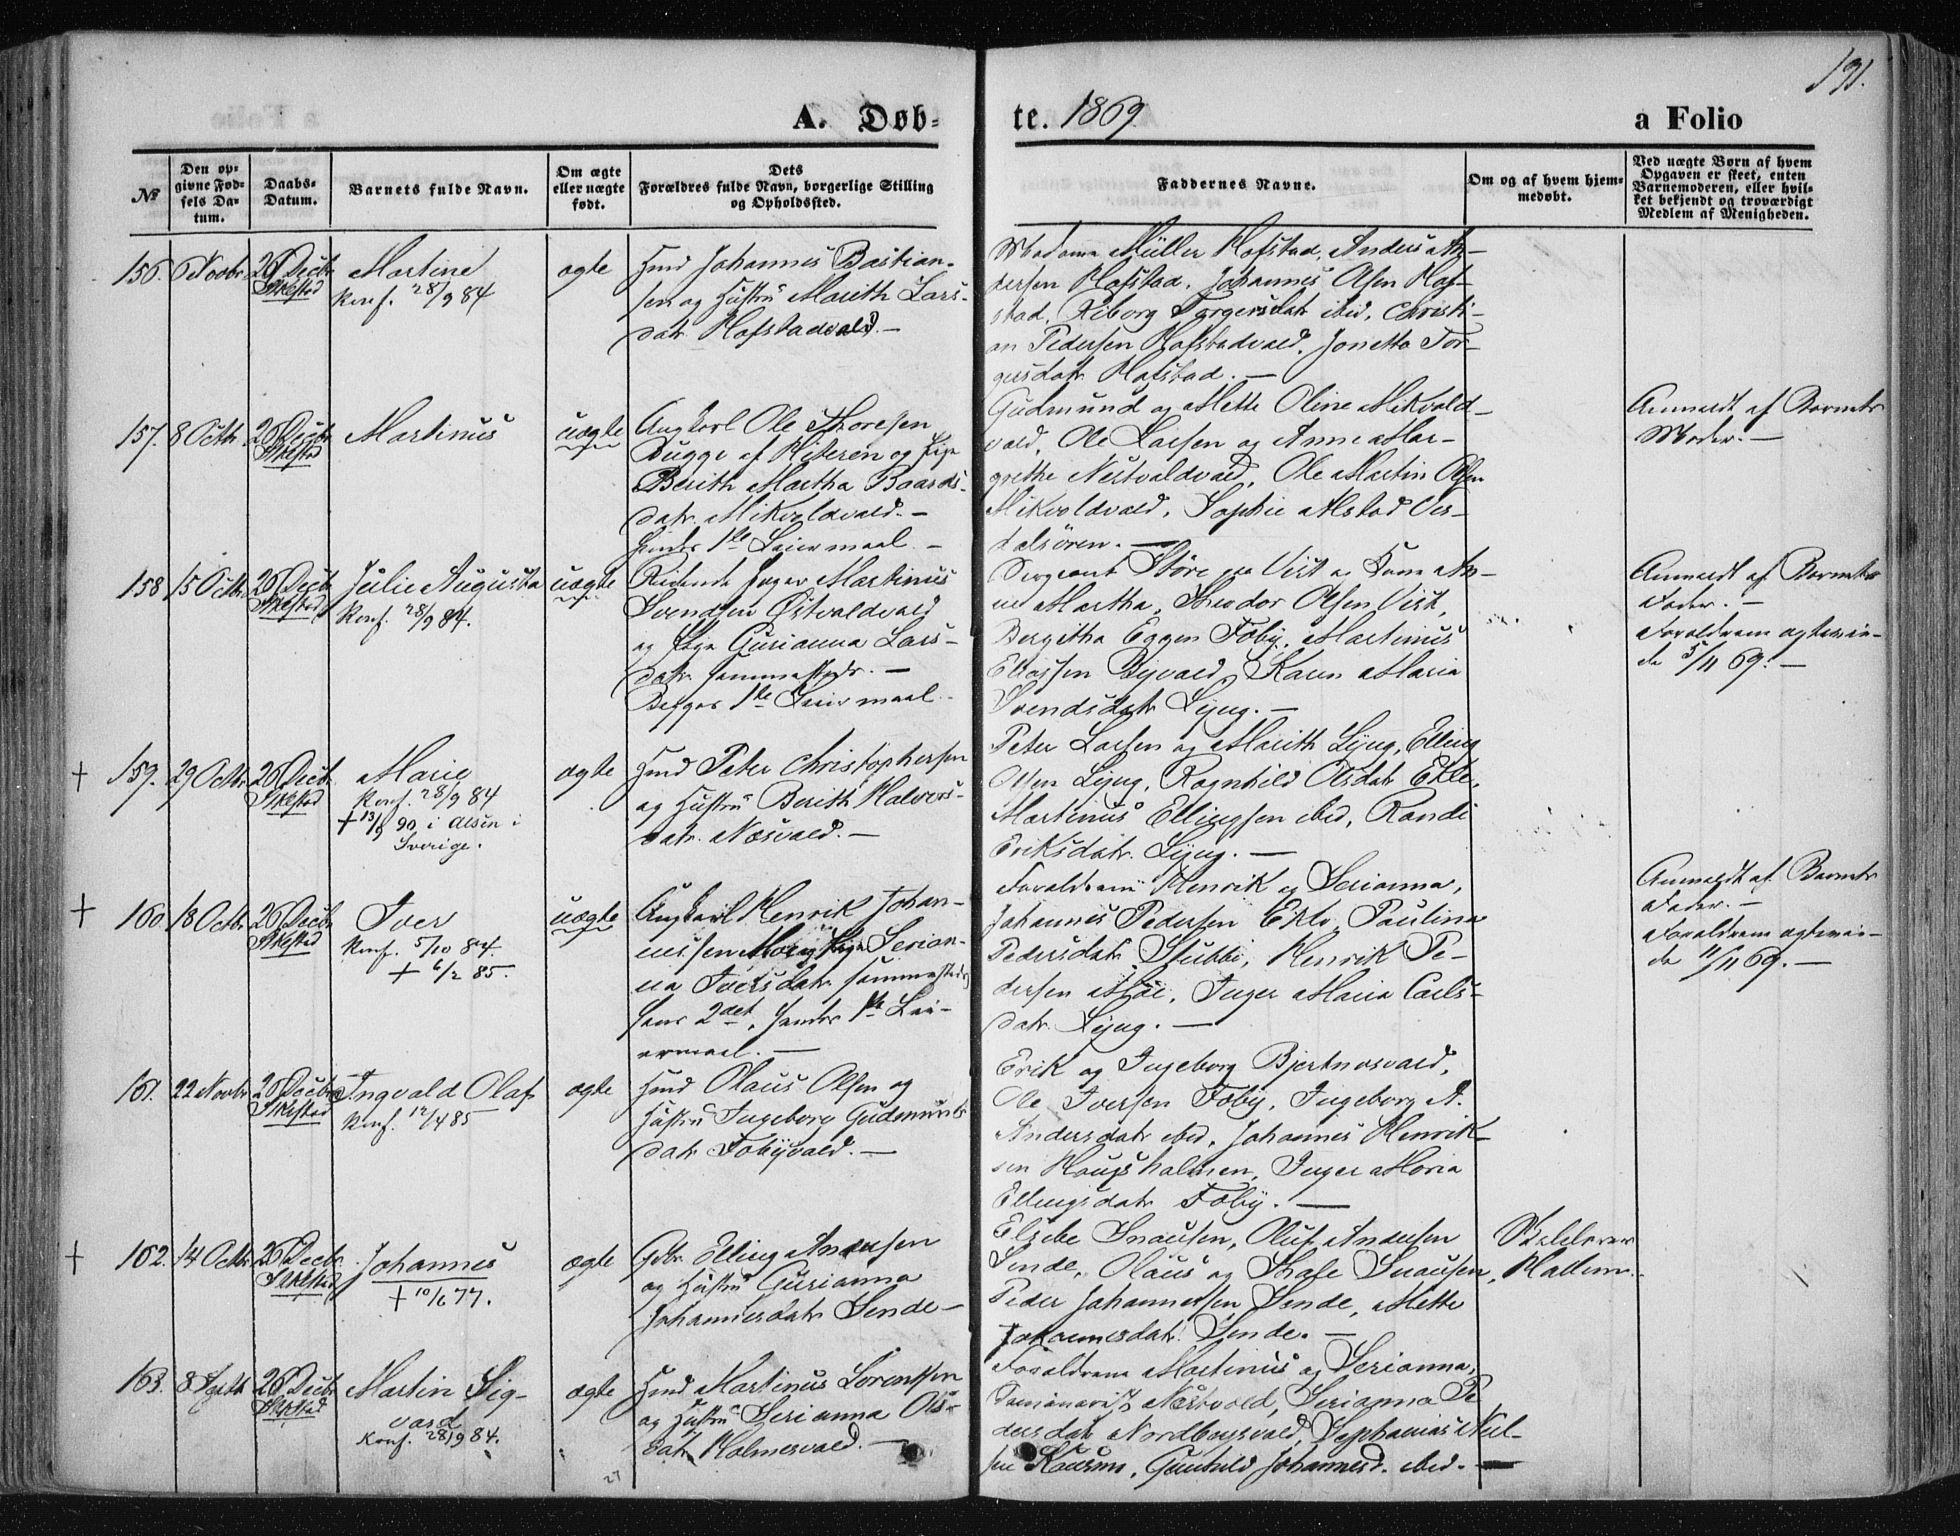 191.
A. Døb-
te. 1869.
a Folio
№
Den op-
givne Fød-
sels Da-
tum.
Daabs-
Datum.
Barnets fulde Navn.
Om ægte
eller uægte
født.
Dets
Forældres fulde Navn, borgerlige Stilling
og Opholdssted.
Faddernes Navne.
Om og af hvem hjem-
medøbt.
Ved uægte Børn af hvem
Opgaven er skeet, enten
Barnemoderen, eller hvil-
ket bekjendt og troværdigt
Medlem af Menigheden.
156. Novbr 26 Decbr
Skestad
Martine
Konf. 28/9 84
ægte
Johannes Bastian-
sen og Hustru Marith Lars-
datr Hofstadvald. —
Madame Müller Hofstad, Anders An-
dersen Hofstad, Johannes Olsen Hof-
stad, Riborg Torgersdatr ibid, Christi-
an Pedersen Hofstadvald, Jonetta Tor-
gersdatr Hofstad. —
157. 8 Octbr 26 Decbr
Skestad
Martinus
uægte
Ungkarl Ole Thoresen
Bugge af Hiteren og Pige
Berith Martha Baards-
datr Mikvoldvald. —
hendes 1ste Leiermaal. —
Gudmund og Mette Oline Mikvold-
vald, Ole Larsen og Anne Mar-
grethe Nestvaldvald, Ole Martin Olsen
Mikvoldvald, Sophie Alstad Ver-
dalsøren. —
Anmeldt af Barnets
Moder. —
158 15 Octbr 26 Decbr
Skestad
Julie Augusta
Konf. 28/9 84.
uægte
Ridende Jæger Martinus
Svendsen Østvaldvald
og Pige Gurianna Lars-
datr sammesteds. —
Begges 1ste Leiermaal. —
Sergeant Støre Vist
Martha, Theodor Olsen Vist,
Bergitha Eggen Føby, Martinus
Eliassen Byvald, Karen Maria
Svendsdatr Lyng. —
Anmeldt af Barnets
Fader. —
Forældrene ægtevie-
de 5/11 69. —
+ 159. 29 Octbr 26 Decbr
Skestad
Marie
Konf. 28/9 84
+ 13/9 90 i Alsen i
Sverige.
ægte
Peter Christophersen
og Hustru Berith Halvors-
datr Næsvald. —
Peter Larsen og Marith Lyng, Elling
Olsen Lyng, Ragnhild Olsdatr Ekle,
Martinus Ellingsen ibid, Randi
Eriksdatr Lyng. —
+ 160. 18 Octbr 26 Decbr
Skestad
Iver
Konf. 5/10 84.
+ 6/2 85.
uægte
Ungkarl Henrik Johan-
nessen og Pige Serian-
na Iversdatr sammesteds
hans 2det, hendes 1ste Lei-
ermaal. —
Forældrene Henrik og Serianna,
Johannes Pedersen Eklo, Paulina
Pedersdatr Stubbe, Henrik Pe-
dersen Moe, Inger Maria Carls-
datr Lyng. —
Anmeldt af Barnets
Fader. —
Forældrene ægtevie-
de 11/11 69. —
161. 22 Novbr 26 Decbr
Skestad
Ingvald Olaf
Konf. 12/4 85
ægte
Olaus Olsen og
Hustru Ingeborg Gudmunds-
datr Føbyvald. —
Erik og Ingeborg Bjertnesvald,
Ole Iversen Føby, Ingeborg A.
Andersdatr ibid, Johannes Henrik-
sen Haugsholmen, Inger Maria
Ellingsdatr Føby. —
+ 162. 14 Octbr 26 Decbr
Skestad
Johannes
+ 10/6 77.
ægte
Gbr. Elling Andersen
og Hustru Gurianna
Johannesdatr Sende —
Elsebe Snausen, Oluf Andersen
Sende, Olaus og Snausen,
Peder Johannessen Sende, Mette
Johannesdatr Sende. —
Hallem.
163. 8 Septb 26 Decbr
Skestad
Martin Sig-
vard
Konf. 28/9 84.
ægte
Martinus Lorentsen
og Hustru Serianna Ols-
datr Holmesvald. —
27
Forældrene Martinus og Serianna,
Nestvold, Serianna Pe-
dersdatr Nordbergsvald, Sephanias Niel-
sen, Gunhild Johannesd. ibid. —